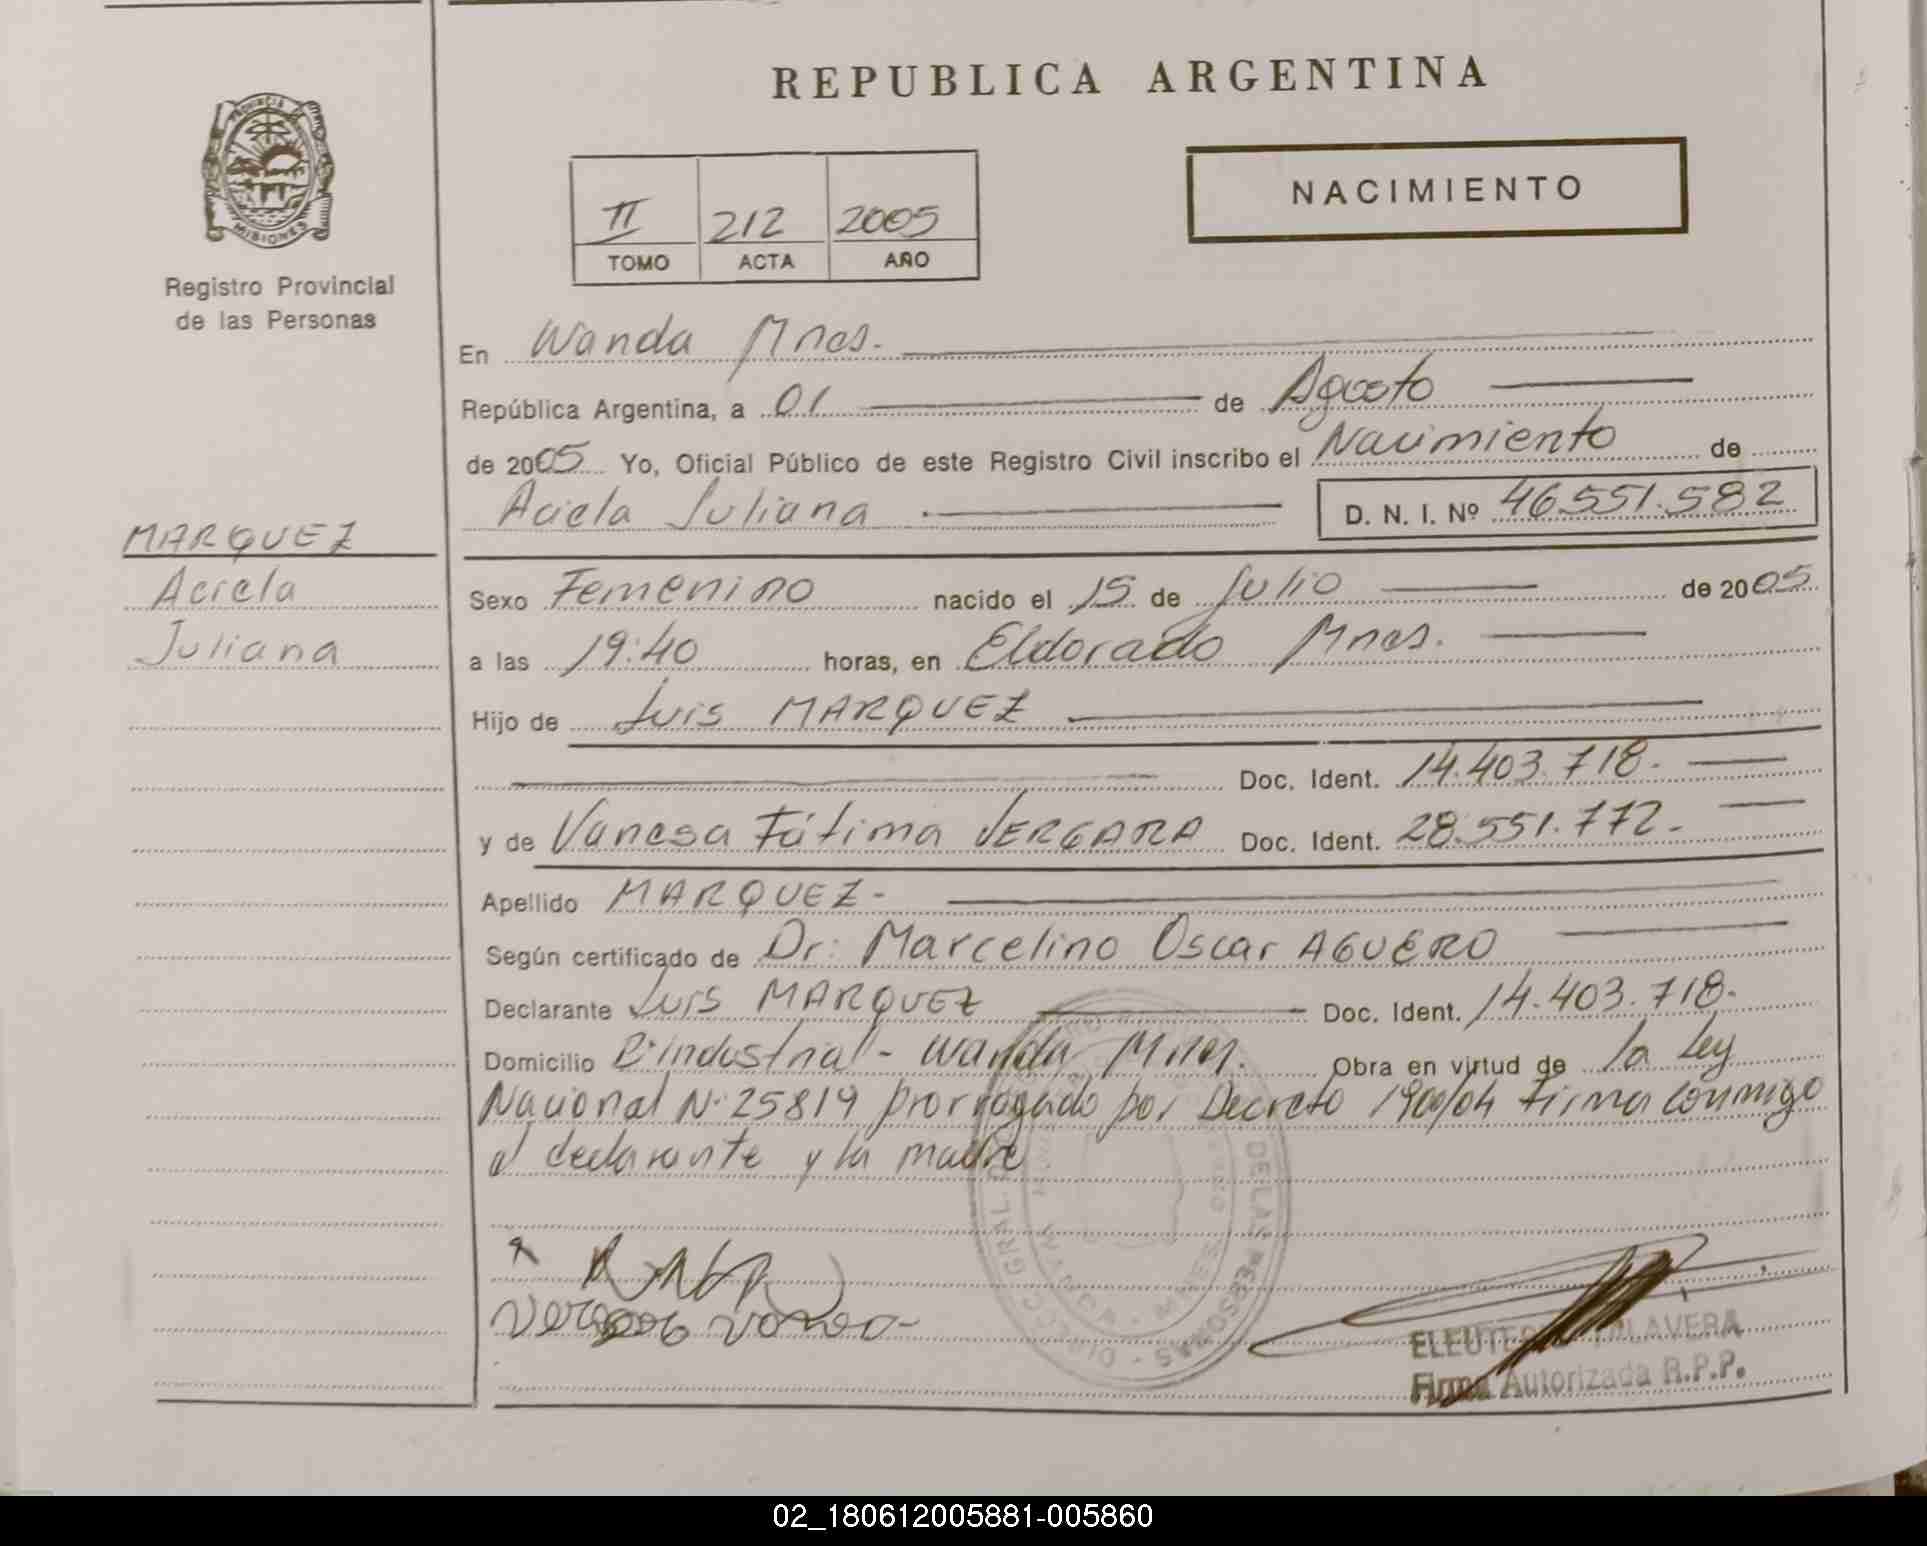 REPUBLICA ARGENTINA
PROVINCIA DE
MISIONES
Registro Provincial
de las Personas
NACIMIENTO
II 212 2005
TOMO ACTA AÑO
En Wanda Mnes.
República Argentina, a 01 de Agosto
de 2005 Yo, Oficial Público de este Registro Civil inscribo el Nacimiento de
Aciela Juliana D. N. I. Nº 46.551.582
MARQUEZ
Aciela
Juliana
Sexo Femenino nacido el 15 de Julio de 2005
a las 19:40 horas, en Eldorado Mnes.
Hijo de Luis MARQUEZ
Doc. Ident. 14.403.718.
y de Vanesa Fátima VERGARA Doc. Ident. 28.551.772.
Apellido MARQUEZ-
Según certificado de Dr: Marcelino Oscar AGUERO
Declarante Luis MARQUEZ Doc. Ident. 14.403.718.
Domicilio Bº Industrial - Wanda Mnes. Obra en virtud de la Ley
Nacional Nº 25819 prorrogado por Decreto 1900/04 Firma conmigo
el declarante y la madre
DE LAS PERSONAS
ELEUTERIO TALAVERA
Firma Autorizada R.P.P.
02_180612005881-005860